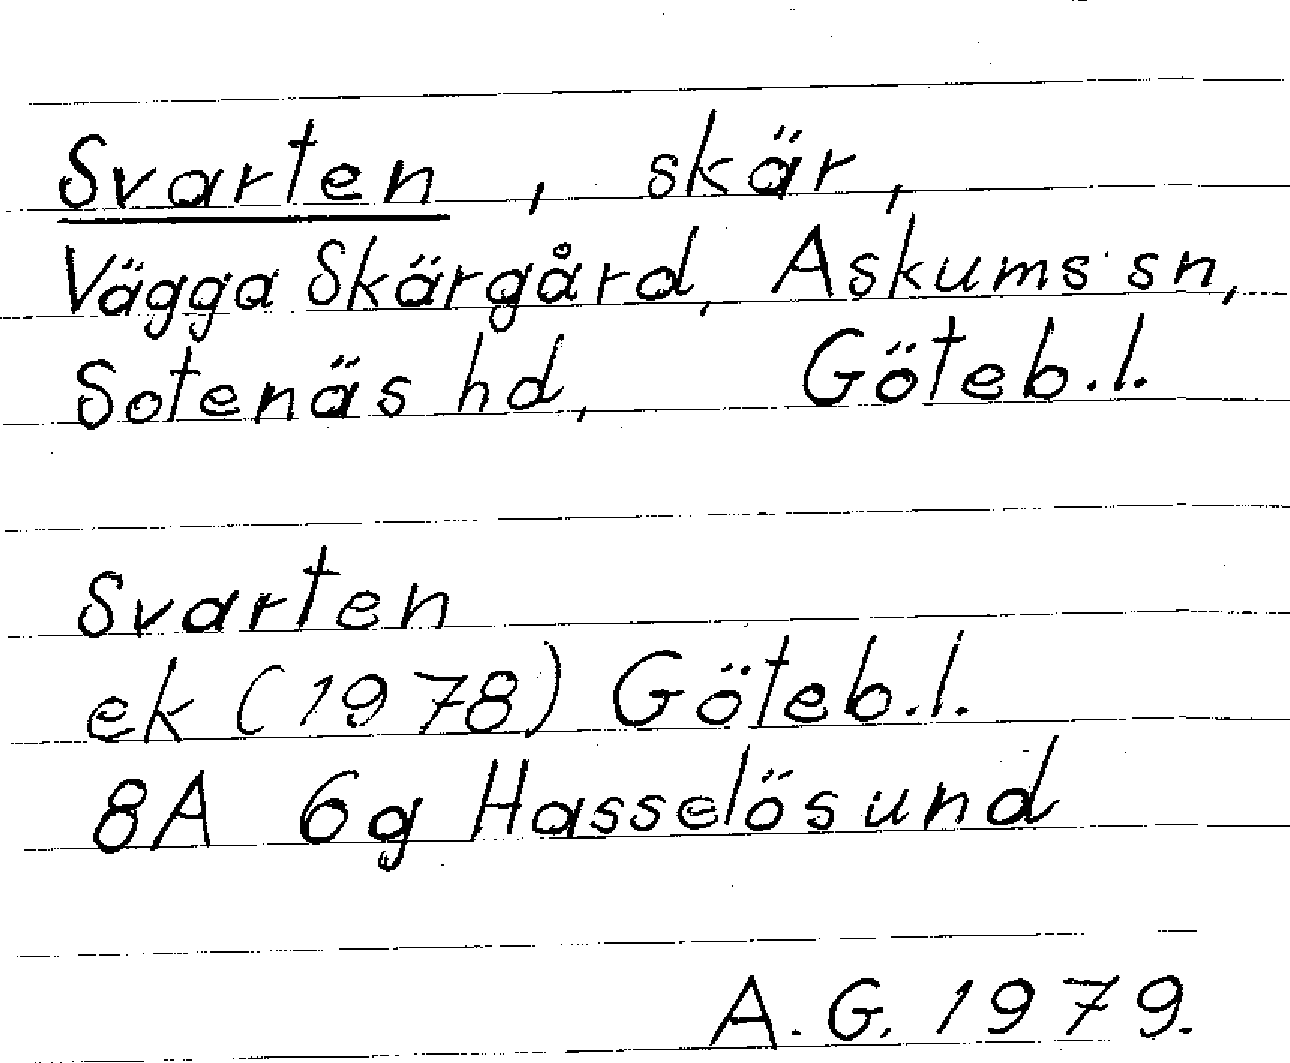 Svarten, skär,
Vägga Skärgård, Askums sn,
Sotenäs hd, Göteb.l.
Svarten
ek (1978) Göteb.l.
8A 6g Hasselösund
A.G. 1979.